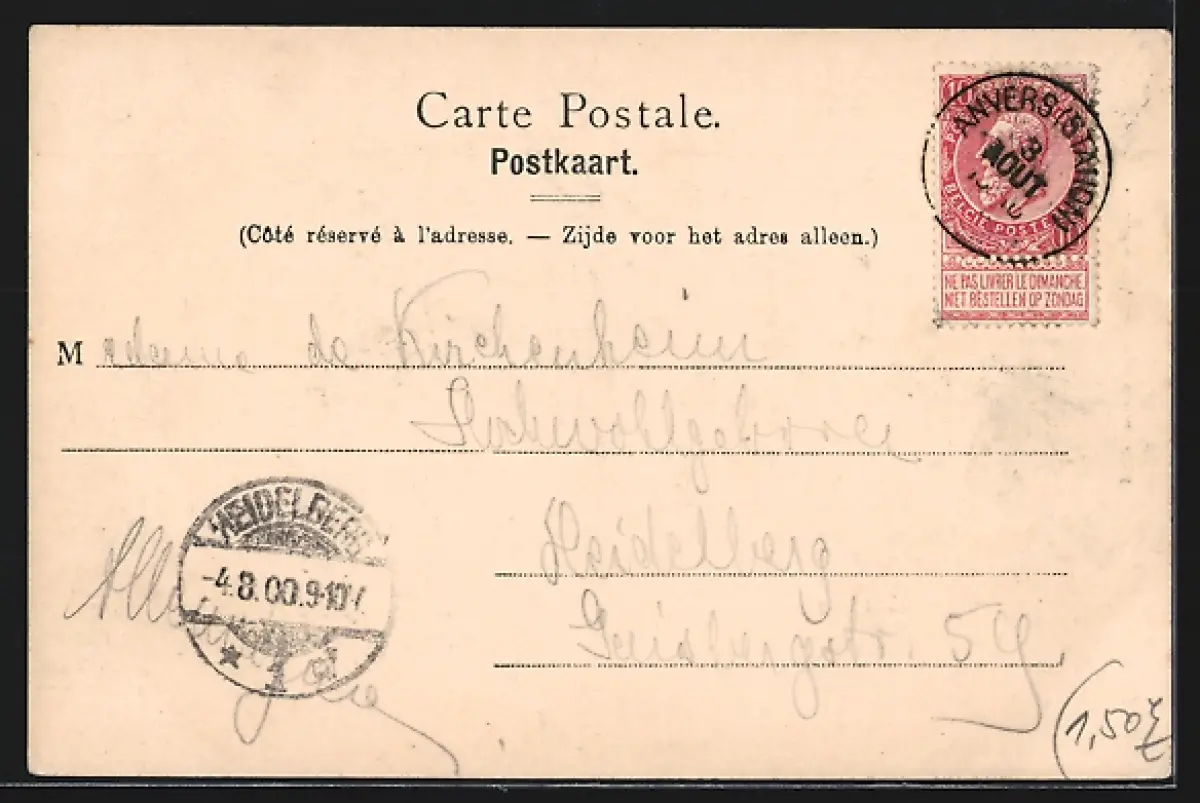 Carte Postale.
Postkaart.
(Côté réservé à l'adresse. — Zijde voor het adres alleen.)
10
ANVERS (STATION)
3
AOUT
BELGIË POSTES
NE PAS LIVRER LE DIMANCHE
NIET BESTELLEN OP ZONDAG
Madame de Kirchenheim
Hochwohlgeboren
HEIDELBERG
-4.8.00.9-10V.
* 1 a
Heidelberg
Allemagne
(1,50